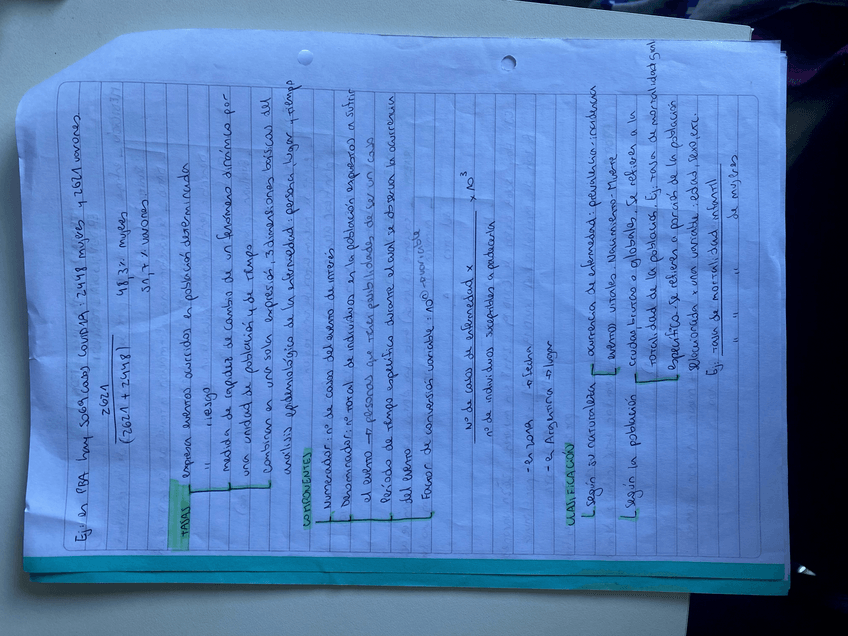 Ej: en PBA hay 5069 casos COVID19: 2448 mujeres y 2621 varones
2621
(2621 + 2448)
48,3% mujeres
51,7% varones
TASAS expresa eventos ocurridos en población determinada
" " riesgo
medida de rapidez de cambio de un fenómeno dinámico por
una unidad de población y de tiempo
combinan en una sola expresión, 3 dimensiones básicas del
análisis epidemiológico de la enfermedad: persona, lugar y tiempo
COMPONENTES
Numerador: nº de casos del evento de interés
Denominador: nº total de individuos en la población expuestos a sufrir
el evento → personas que tienen posibilidades de ser un caso
Período de tiempo específico durante el cual se observa la ocurrencia
del evento
Factor de conversión variable: 10 → variable
nº de casos de enfermedad x
nº de individuos suceptibles a padecerla
x 10³
- en 2018 → fecha
- en Argentina → lugar
CLASIFICACIÓN
Según su naturaleza ocurrencia de enfermedad: prevalencia - incidencia
eventos vitales: Nacimiento - Muerte
Según la población crudas, brutas o globales. Se refieren a la
totalidad de la población. Ej: tasa de mortalidad gral
específica: Se refieren a porción de la población
relacionada x una variable: edad, sexo, etc.
Ej: tasa de mortalidad infantil
" " " de mujeres